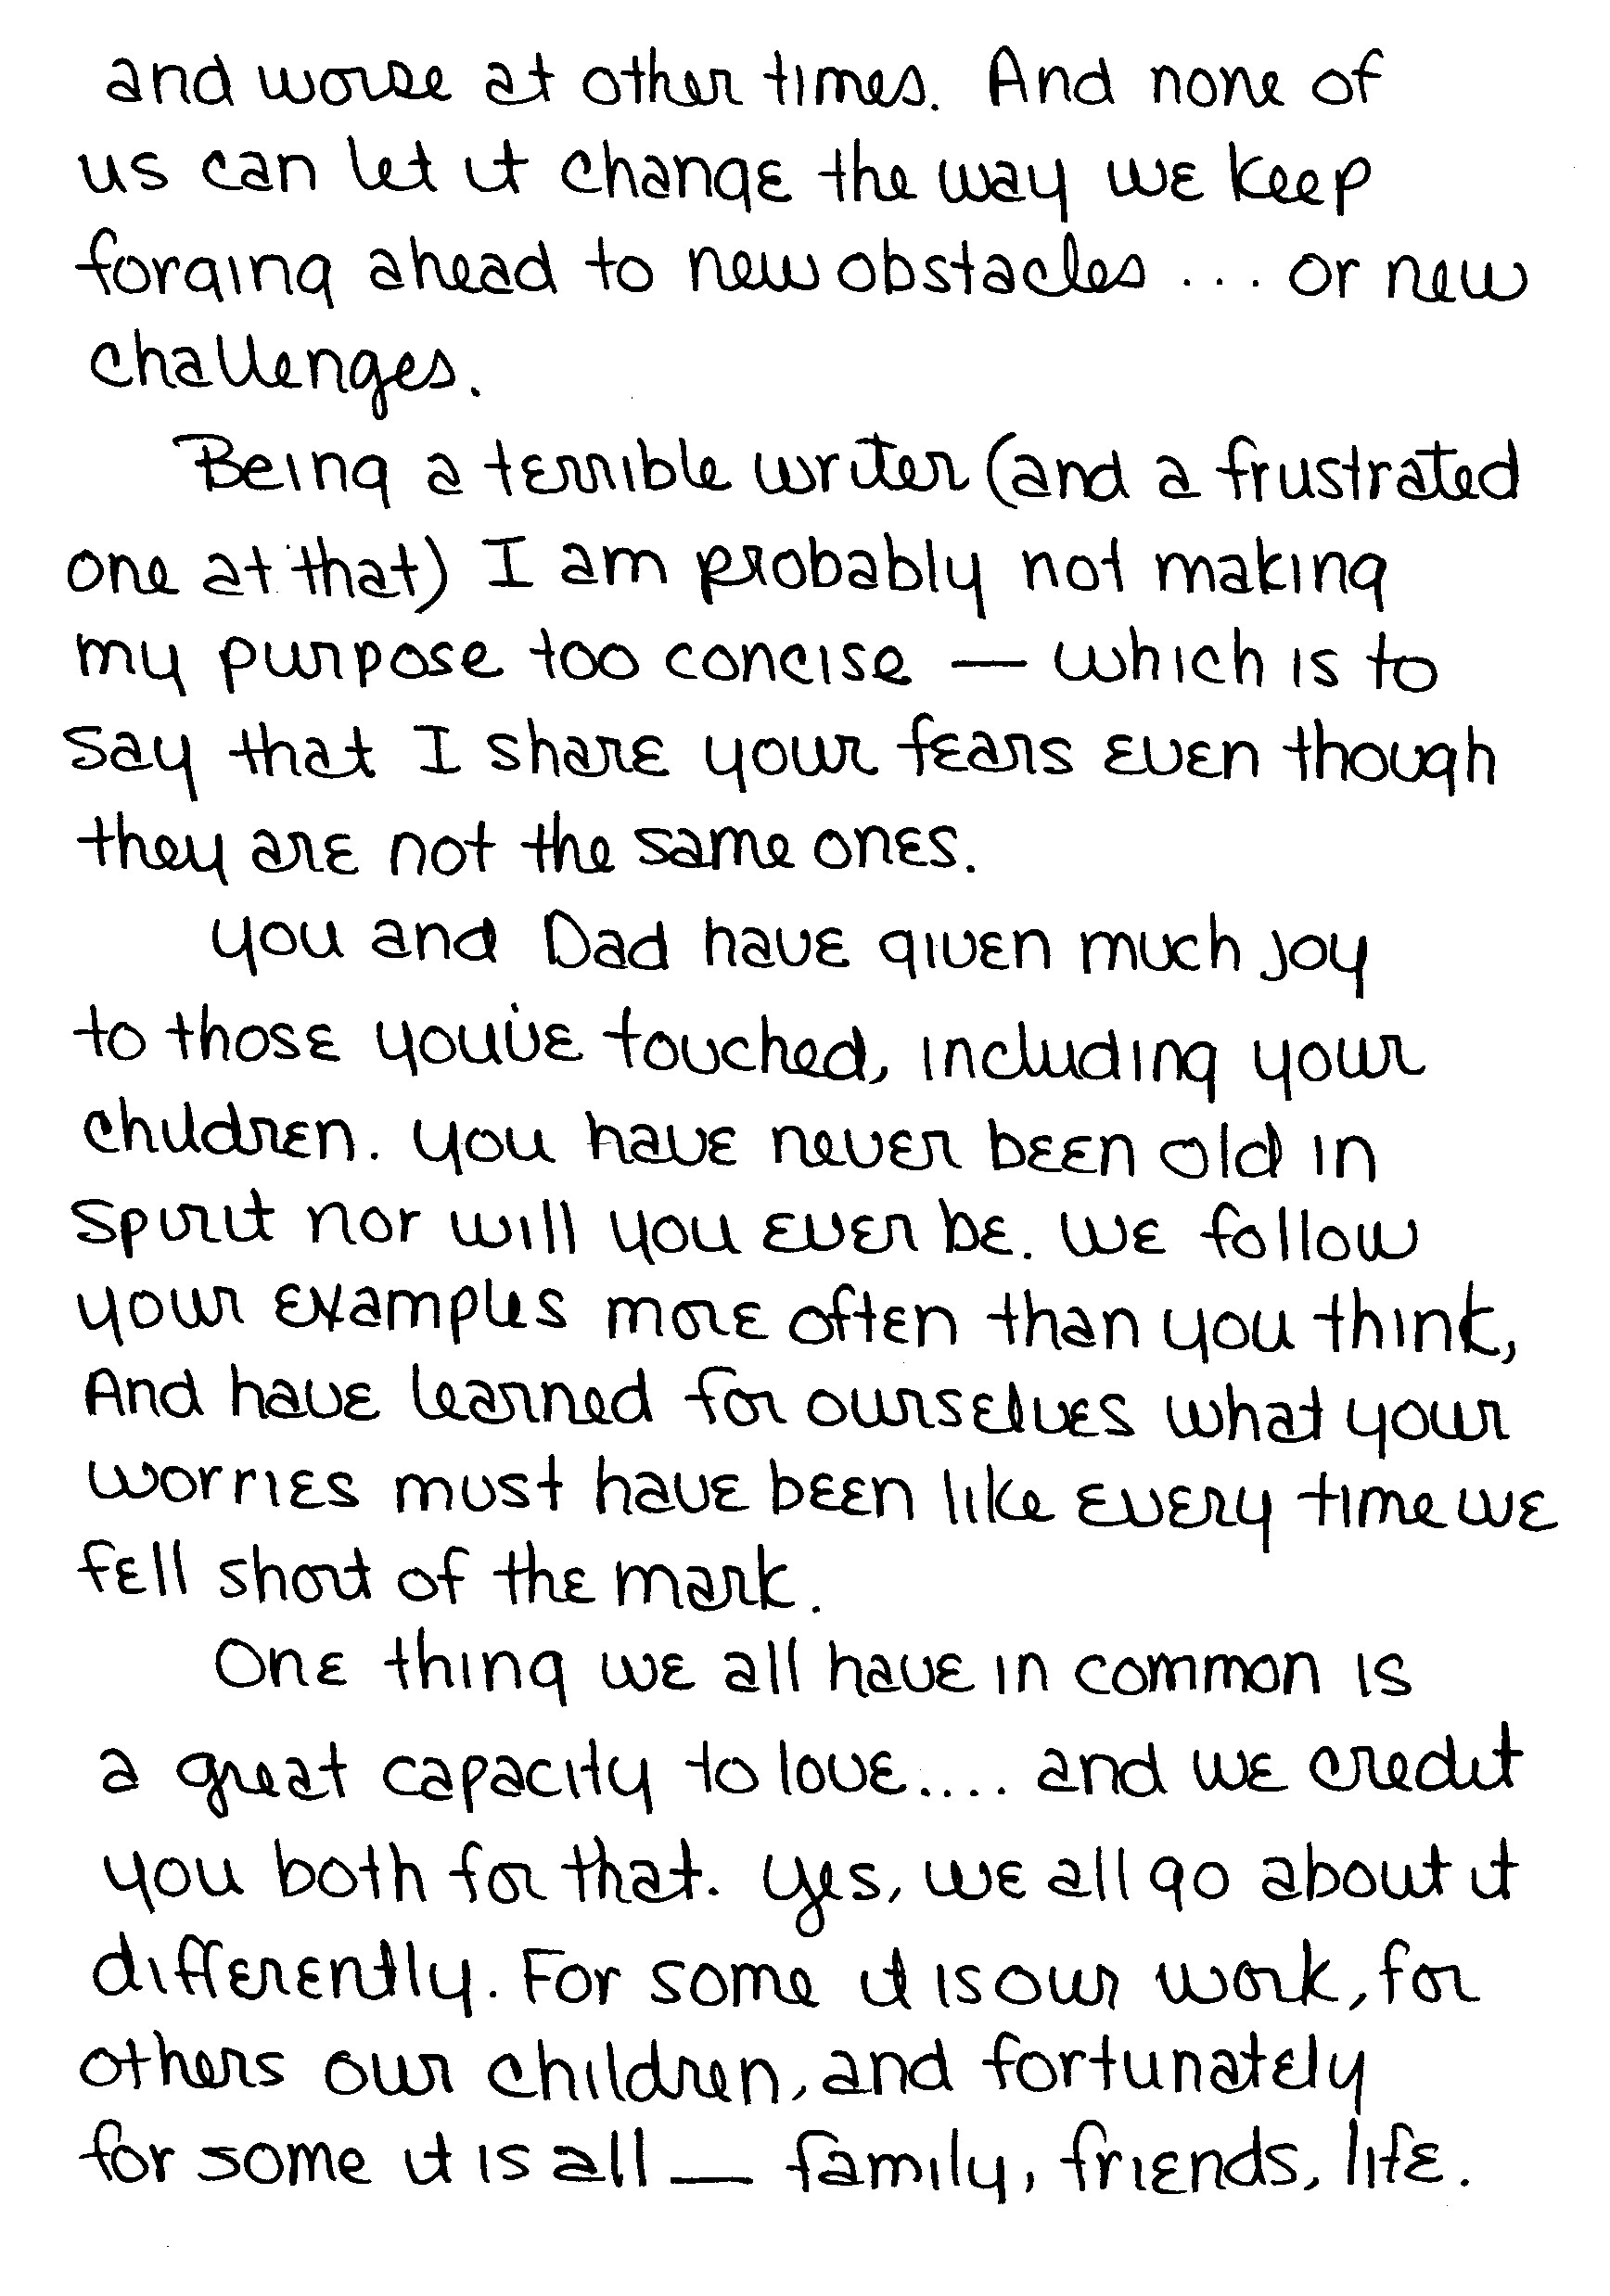 and worse at other times. And none of
us can let it change the way we keep
forging ahead to new obstacles ... or new
challenges.
Being a terrible writer (and a frustrated
one at that) I am probably not making
my purpose too concise — which is to
say that I share your fears even though
they are not the same ones.
You and Dad have given much joy
to those you've touched, including your
children. You have never been old in
spirit nor will you ever be. We follow
your examples more often than you think,
And have learned for ourselves what your
worries must have been like every time we
fell short of the mark.
One thing we all have in common is
a great capacity to love.... and we credit
you both for that. Yes, we all go about it
differently. For some it is our work, for
others our children, and fortunately
for some it is all — family, friends, life.